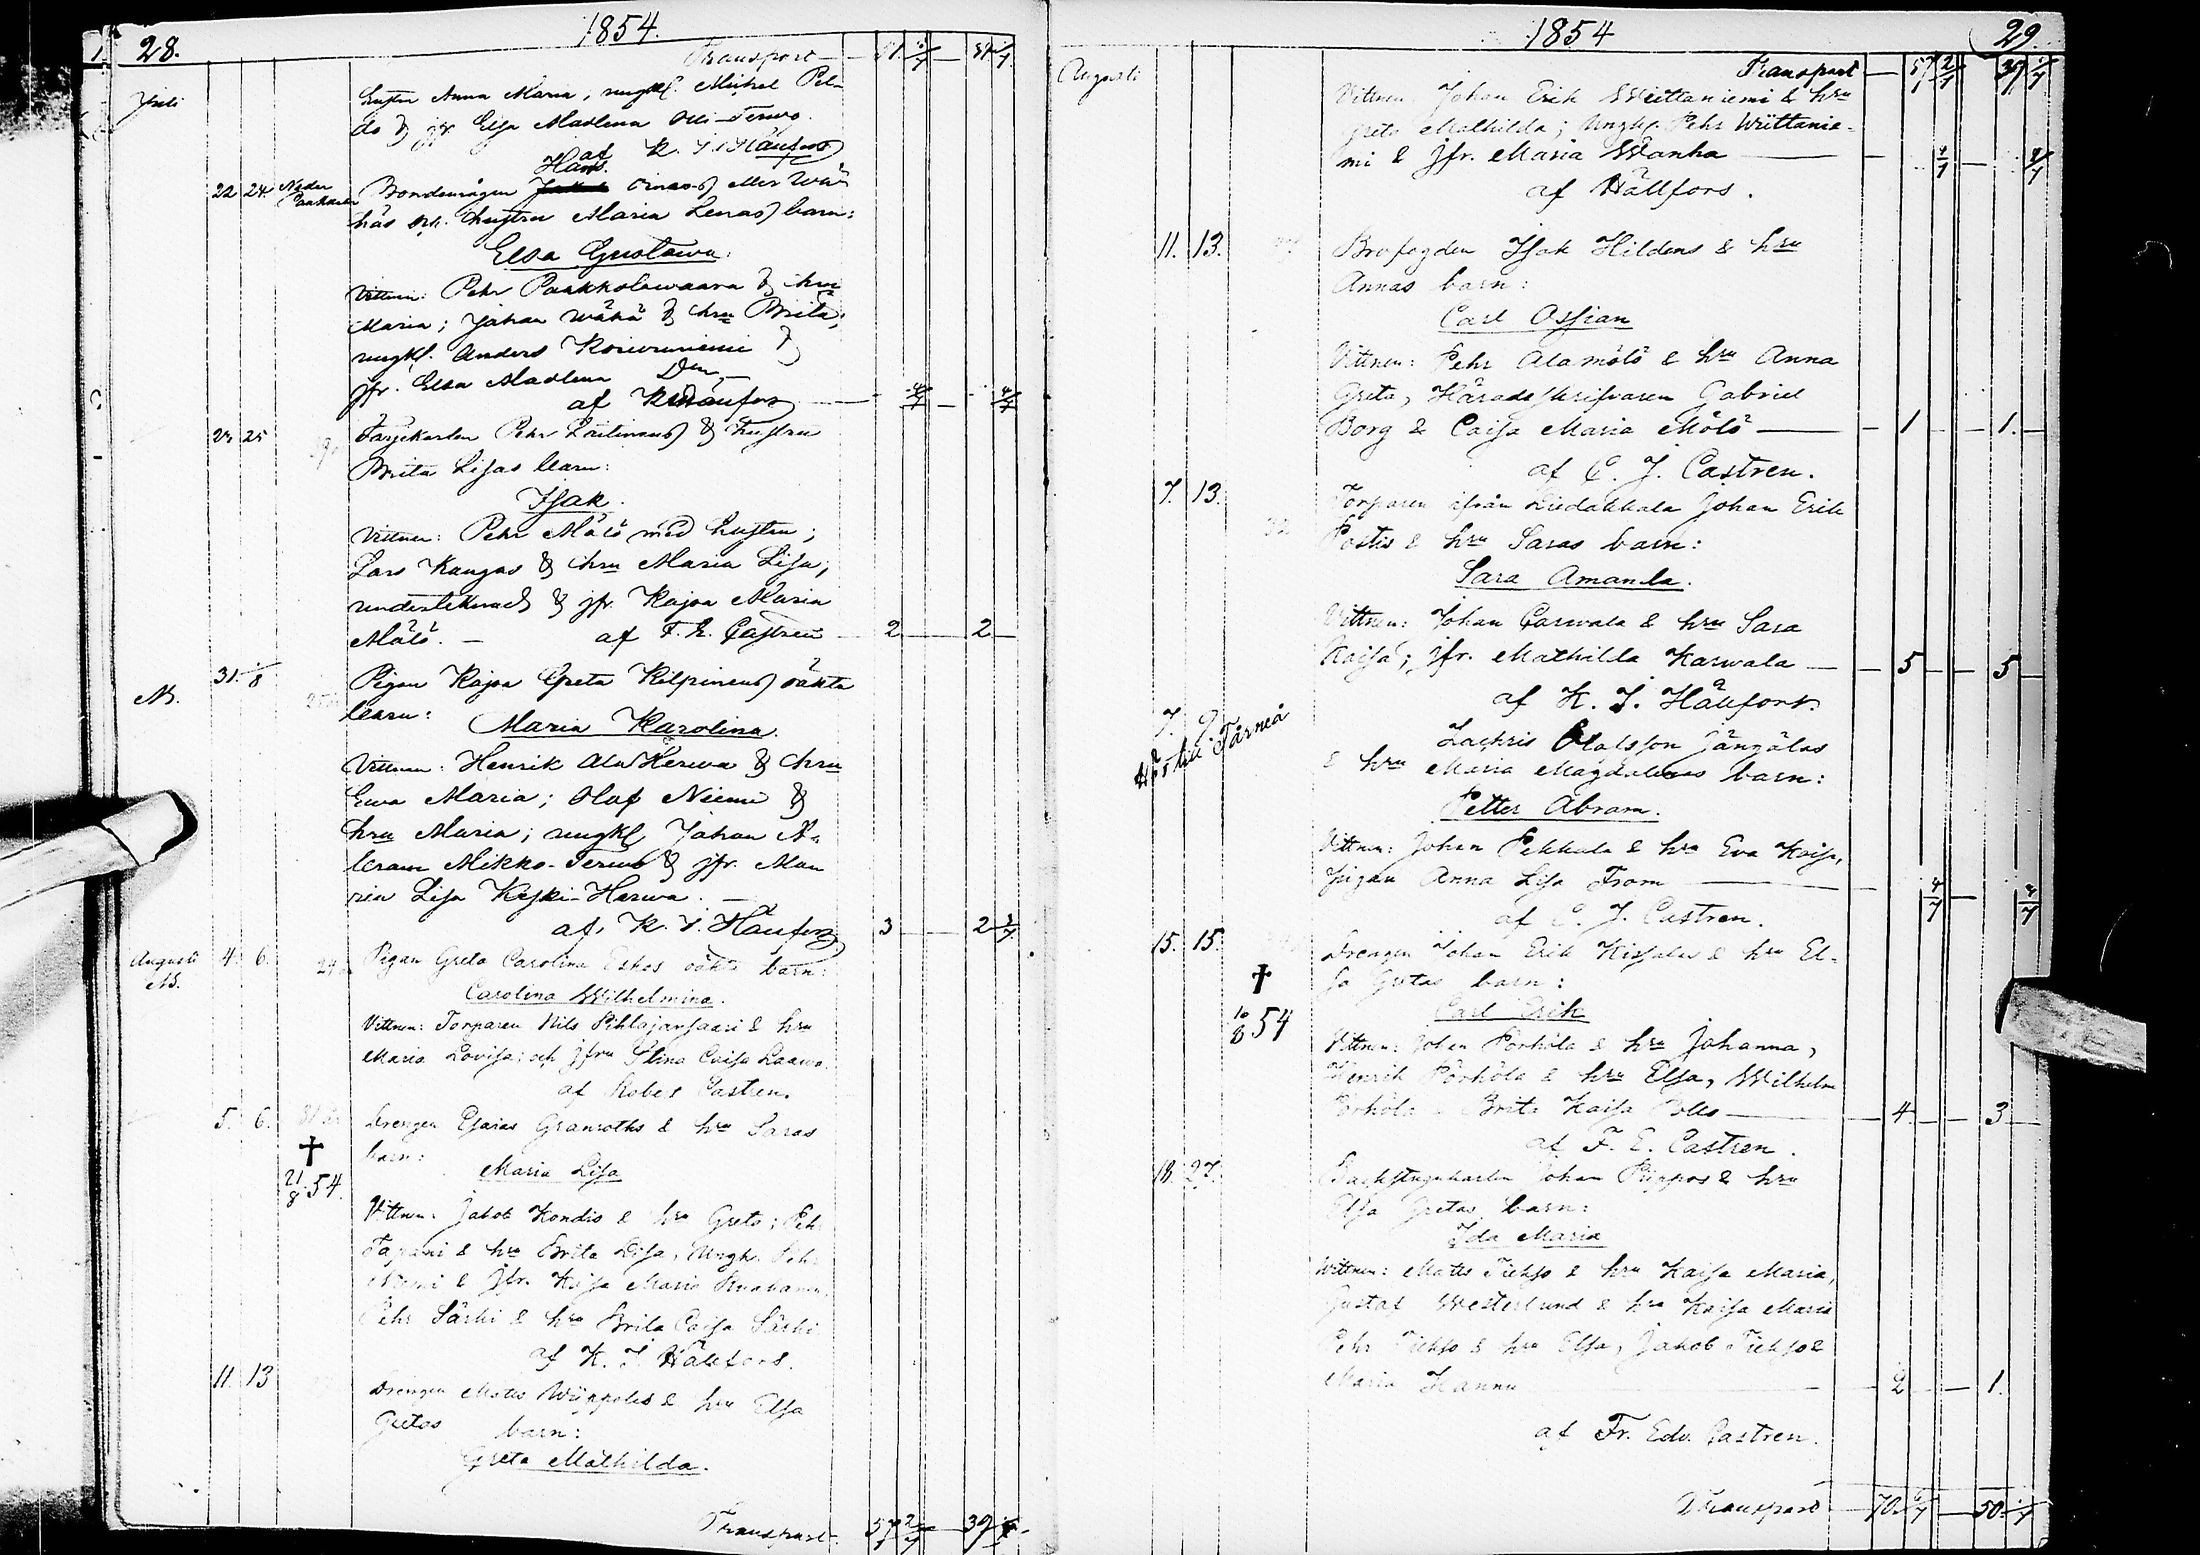 28.
1854.
Transport
Juli
hustru Anna Maria, ungk. Michel Pel-
do & jfr Elsa Madlena Olli-Tervo.
af K. J. Hällfors
Hans
22 24 Neder Bondemågen Oinas eller Wä-
häs och hustru Maria Lenas barn:
Elsa Gustava.
Vittnen: Pehr Paakkolawaara & hru
Maria; Johan Wähä & hru Brita;
ungk. Anders Koivuniemi &
jfr. Elsa Madlena
af K. J. Hällfors
25 Färjekarlen Pehr & hustru
Brita Lisas barn:
Isak.
Vittnen: Pehr Mölö med hustru;
Lars Kangas & hru Maria Lisa;
underteknad & jfr. Kajsa Maria
Mölö. af F. E. Castrén 2 2
31. 1/8 Pigan Kajsa Greta Kilpinens oäkta
barn: Maria Karolina.
Vittnen: Henrik Ala Herva & hru
Ewa Maria; Olof Niemi &
hru Maria; ungk Johan A-
bram Mikko-Tervo & jfr. Ma-
ria Lisa Keski-Herva.
af K. J. Hällfors 3 2
Augusti 4. 6. Pigan Greta Carolina Eskos oäkta barn:
Carolina Wilhelmina.
Vittnen: Torparen Nils Pihlajansaari & hru
Maria Lovisa; och jfru Stina Caisa Laawa.
af Robert Castren.
5. 6. Drengen Esaias Granroths & hru Saras
barn: Maria Lisa
† 21/8 54.
Vittnen: Jakob Kondis & hru Greta; Pehr
Tapani & hru Brita Lisa, Ungk. Pehr
Niemi & Jfr. Kajsa Maria
Pehr Särki & hru Brita Caisa Särki
af K. J. Hällfors.
11. 13 Drengen Matts Wiippolas & hru Elsa
Gretas barn:
Greta Mathilda.
Transport 57 2/7 39
1854
29.
Augusti
Transport 57 2/7 39
Vittnen: Johan Erik Wiittaniemi & hru
Greta Mathilda; Ungk. Pehr Wiittanie-
mi & jfr. Maria Wanha 4/7 4/7
af Hällfors.
11. 13. Brofogden Isak Hildens & hru
Annas barn:
Carl Ossian
Vittnen: Pehr Alamölö & hru Anna
Greta, Häradsskrifvaren Gabriel
Borg & Caisa Maria Mölö 1 1.
af C. J. Castren.
7. 13. Torparen ifrån Liedakkala Johan Erik
Postis & hru Saras barn:
Sara Amanda.
Vittnen: Johan Carwala & hru Sara
Kaisa; jfr. Mathilda Karwala 5 5
af K. J. Hällfors.
7. 9. Hör till Tårneå
Zachris Olofsson Jängälas
& hru Maria Magdalenas barn:
Petter Abram.
Vittnen: Johan Pekkala & hru Eva Kaisa,
pigan Anna Lisa From 4/7 4/7
af C. J. Castren.
15. 15. Drengen Johan Erik & hru El-
sa Gretas barn:
† Carl Erik
10/8 54
Vittnen: Johan Pörhölä & hru Johanna,
Henrik Pörhölä & hru Elsa, Wilhelm
Pörhölä Brita Kaisa 4 3
af F. E. Castren.
18. 27. Johan Piippos & hru
Elsa Gretas barn:
Ida Maria
Vittnen: Matts Tiekso & hru Kaisa Maria,
Gustaf Westerlund & hru Kaisa Maria
Pehr Tiekso & hru Elsa, Jakob Tiekso &
Maria Hannu 2 1.
af Fr. Edv. Castren.
Transport 70 6/7 50